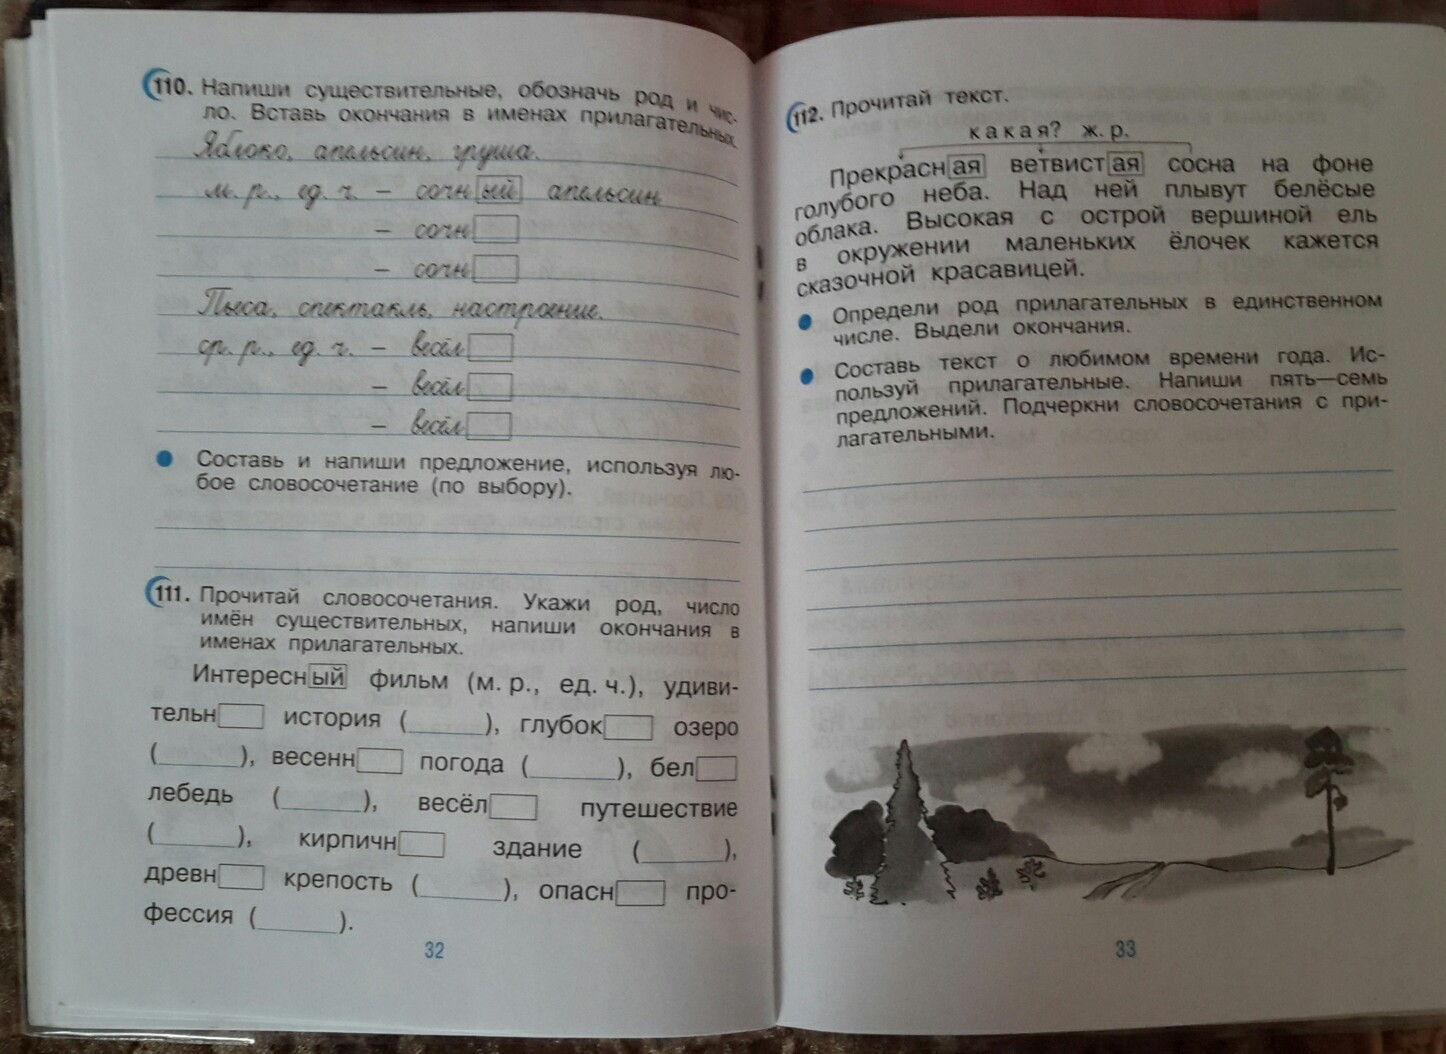 110. Напиши существительные, обозначь род и чис-
ло. Вставь окончания в именах прилагательных.
Яблоко, апельсин, груша.
м. р., ед. ч. – сочный апельсин
– сочн
– сочн
Пьеса, спектакль, настроение.
ср. р., ед. ч. – весёл
– весёл
– весёл
Составь и напиши предложение, используя лю-
бое словосочетание (по выбору).
111. Прочитай словосочетания. Укажи род, число
имён существительных, напиши окончания в
именах прилагательных.
Интересный фильм (м. р., ед. ч.), удиви-
тельн история (______), глубок озеро
(______), весенн погода (______), бел
лебедь (______), весёл путешествие
(______), кирпичн здание (______),
древн крепость (______), опасн про-
фессия (______).
32
112. Прочитай текст.
какая? ж. р.
Прекрасная ветвистая сосна на фоне
голубого неба. Над ней плывут белёсые
облака. Высокая с острой вершиной ель
в окружении маленьких ёлочек кажется
сказочной красавицей.
Определи род прилагательных в единственном
числе. Выдели окончания.
Составь текст о любимом времени года. Ис-
пользуй прилагательные. Напиши пять—семь
предложений. Подчеркни словосочетания с при-
лагательными.
33